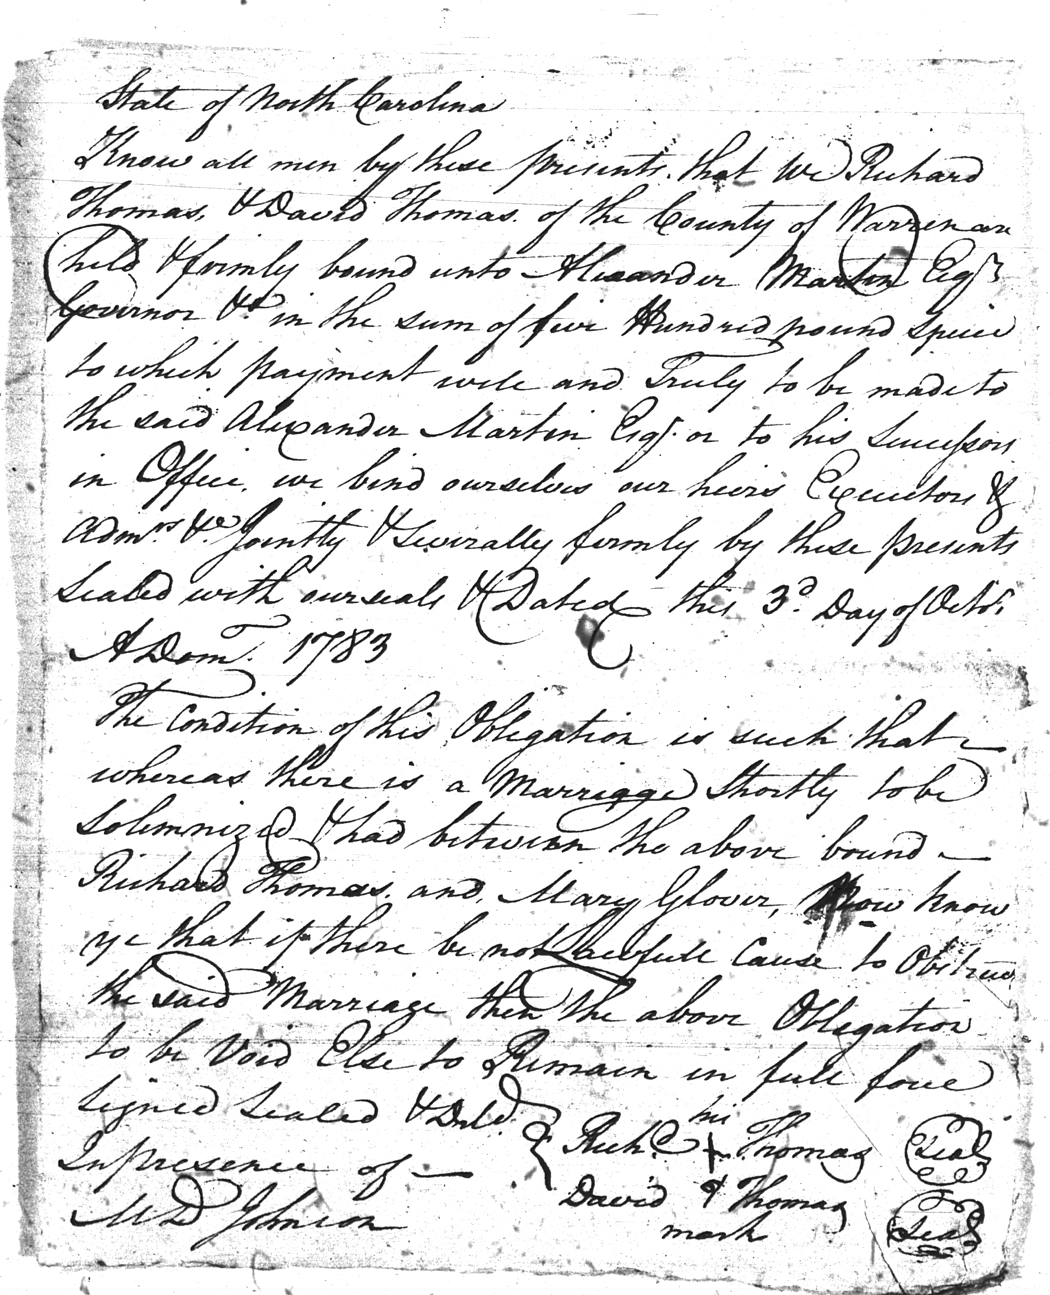 State of North Carolina
Know all men by these presents. that We Richard
Thomas, & David Thomas. of the County of Warren are
held & firmly bound unto Alexander Martin Esqr
Governor &c in the sum of five Hundred pound Specie
to which payment well and Truly to be made to
the said Alexander Martin Esqr. or to his Successors
in Office, we bind ourselves our heirs Executors &
Admrs &c. Jointly & Severally firmly by these presents
Sealed with our seals & Dated this 3d Day of Octor
A Dom. 1783
The Condition of this Obligation is such that
whereas there is a Marriage Shortly to be
Solemnized & had between the above bound
Richard Thomas, and, Mary Glover, Now know
ye that if there be not Lawfull Cause to Obstruct
the said Marriage then the above Obligation
to be Void Else to Remain in full force
Signed Sealed & Deld.
In presence of
M D Johnson
his
Richd. + Thomas Seal
David + Thomas Seal
mark